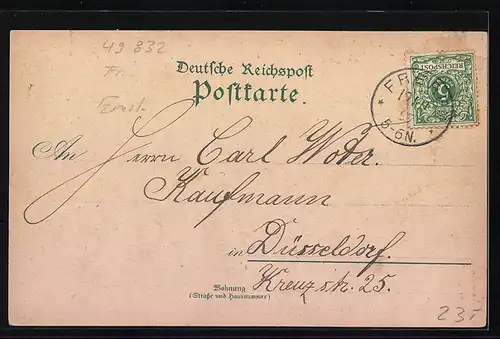 49 832
Fr.
Deutsche Reichspost
Postkarte.
REICHSPOST
5
5-6N.
An Herrn Carl Woter.
Kaufmann
in Düsseldorf.
Wohnung
(Straße und Hausnummer)
Kreuzstr. 25.
235